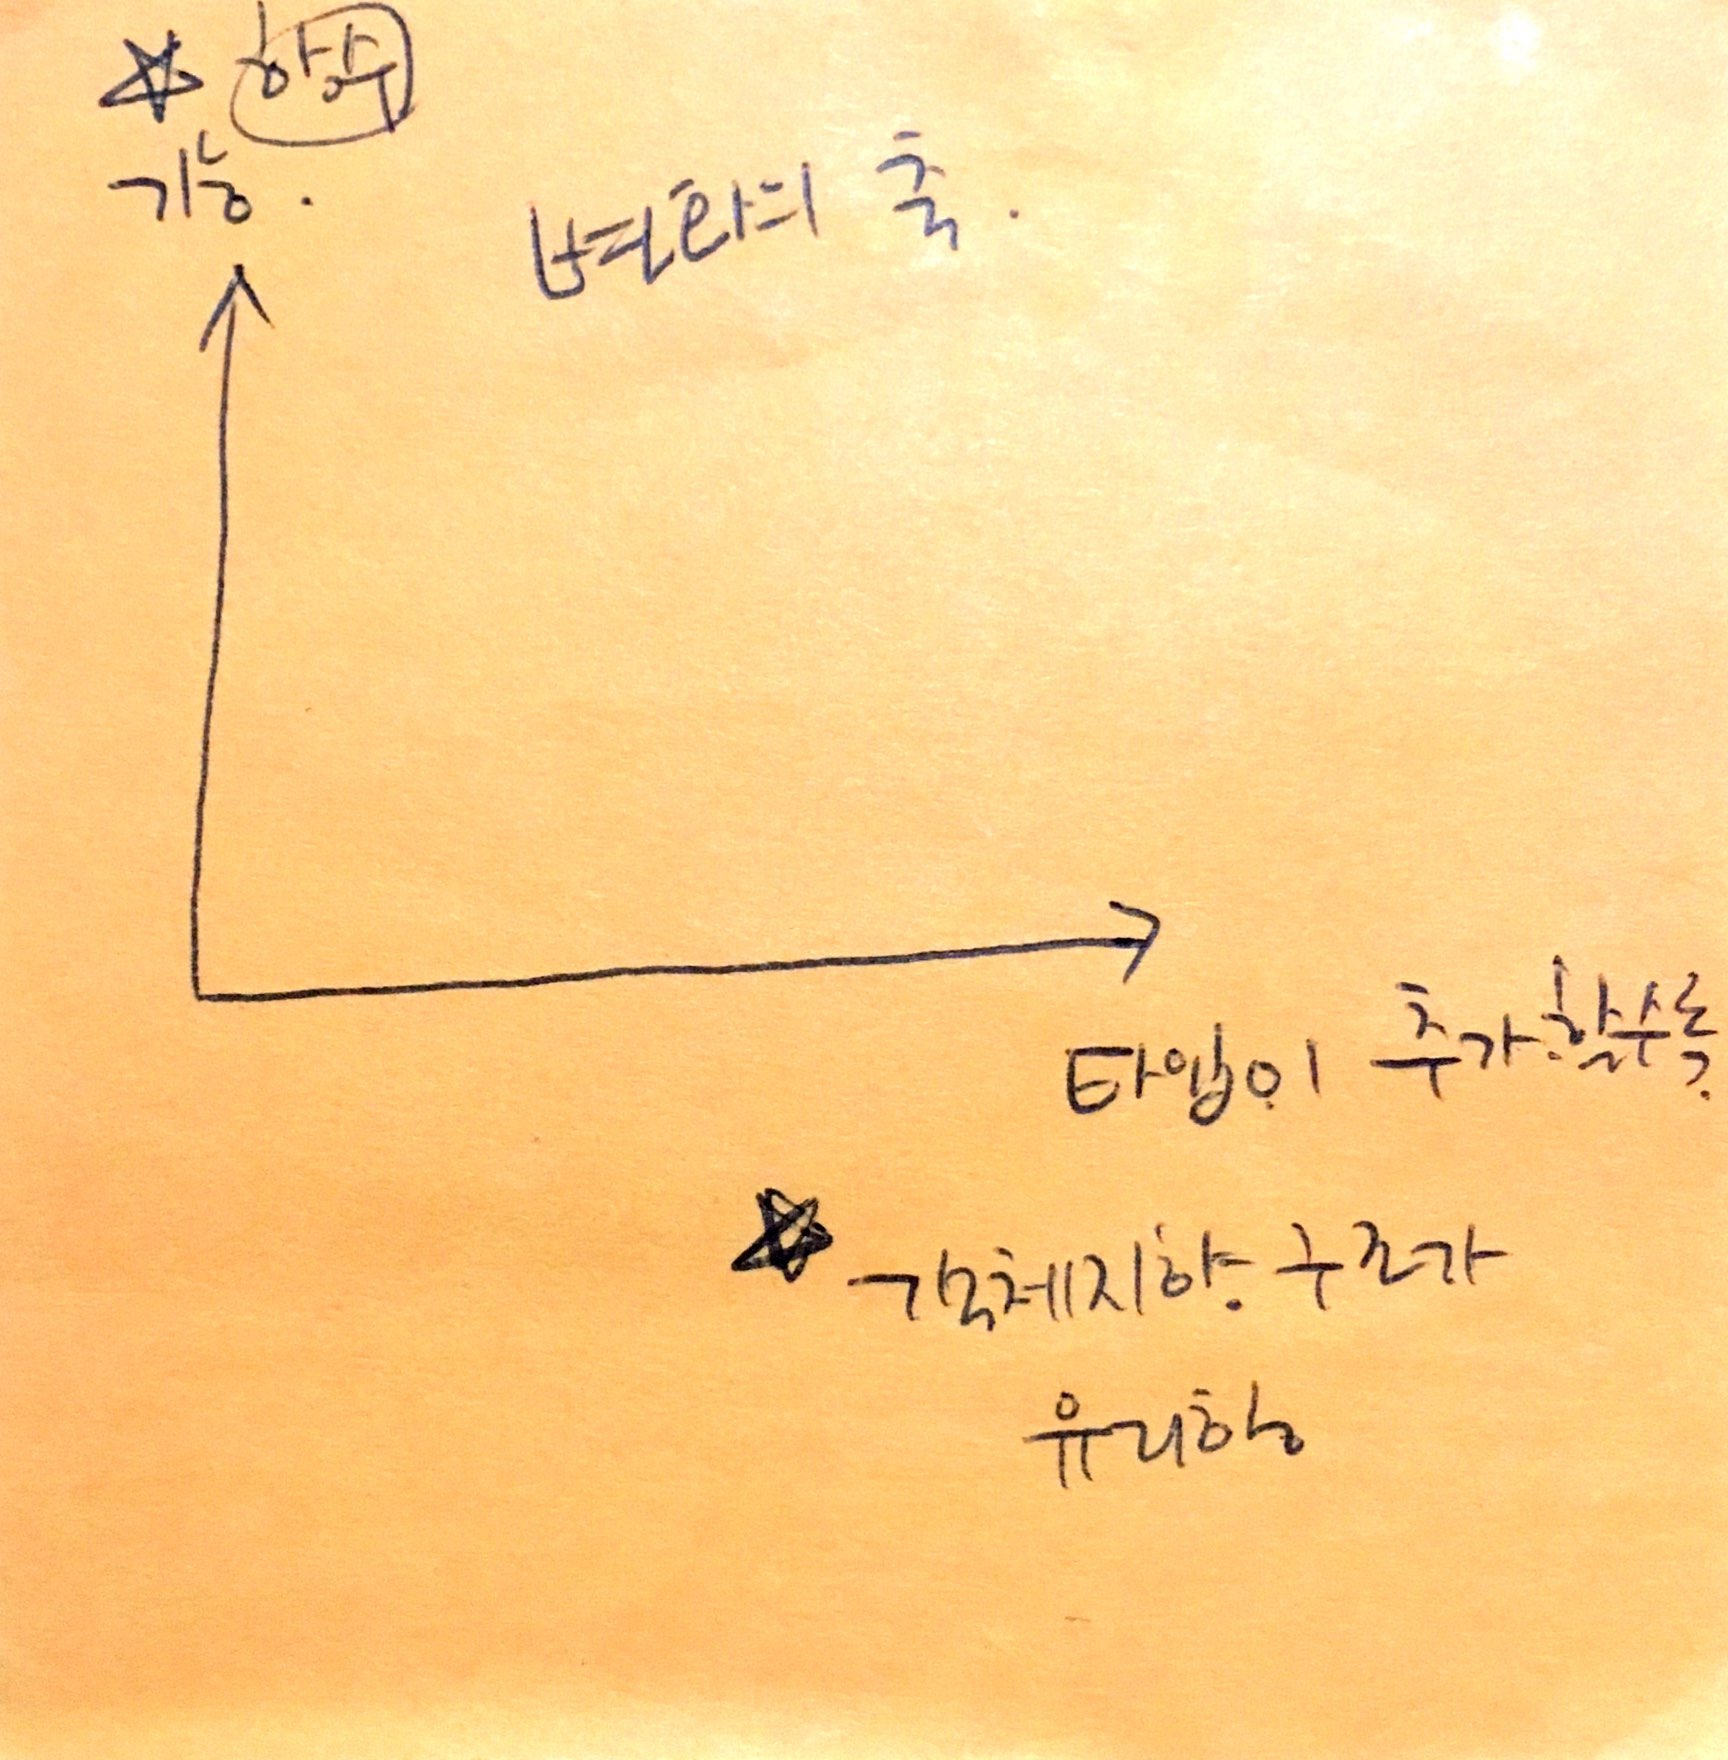 항수
기능.
변화의 축.
타입이 추가할수록.
객체지향 구조가
유리함